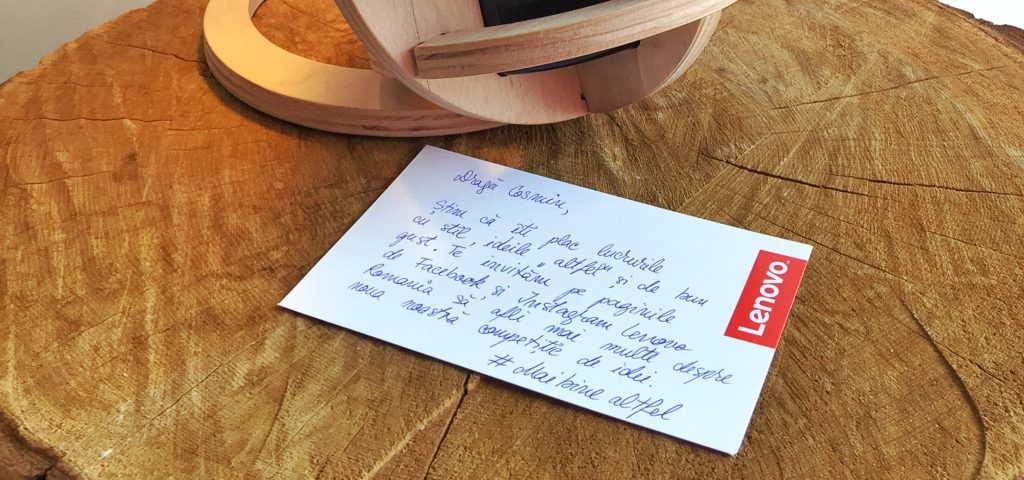 Dragă Cosmin,
Știm că îți plac lucrurile
cu stil, ideile "altfel" și de bun
gust. Te invităm pe paginile
de Facebook și Instagram Lenovo
Romania să afli mai multe despre
noua noastră competiție de idei.
#Maibine altfel
Lenovo